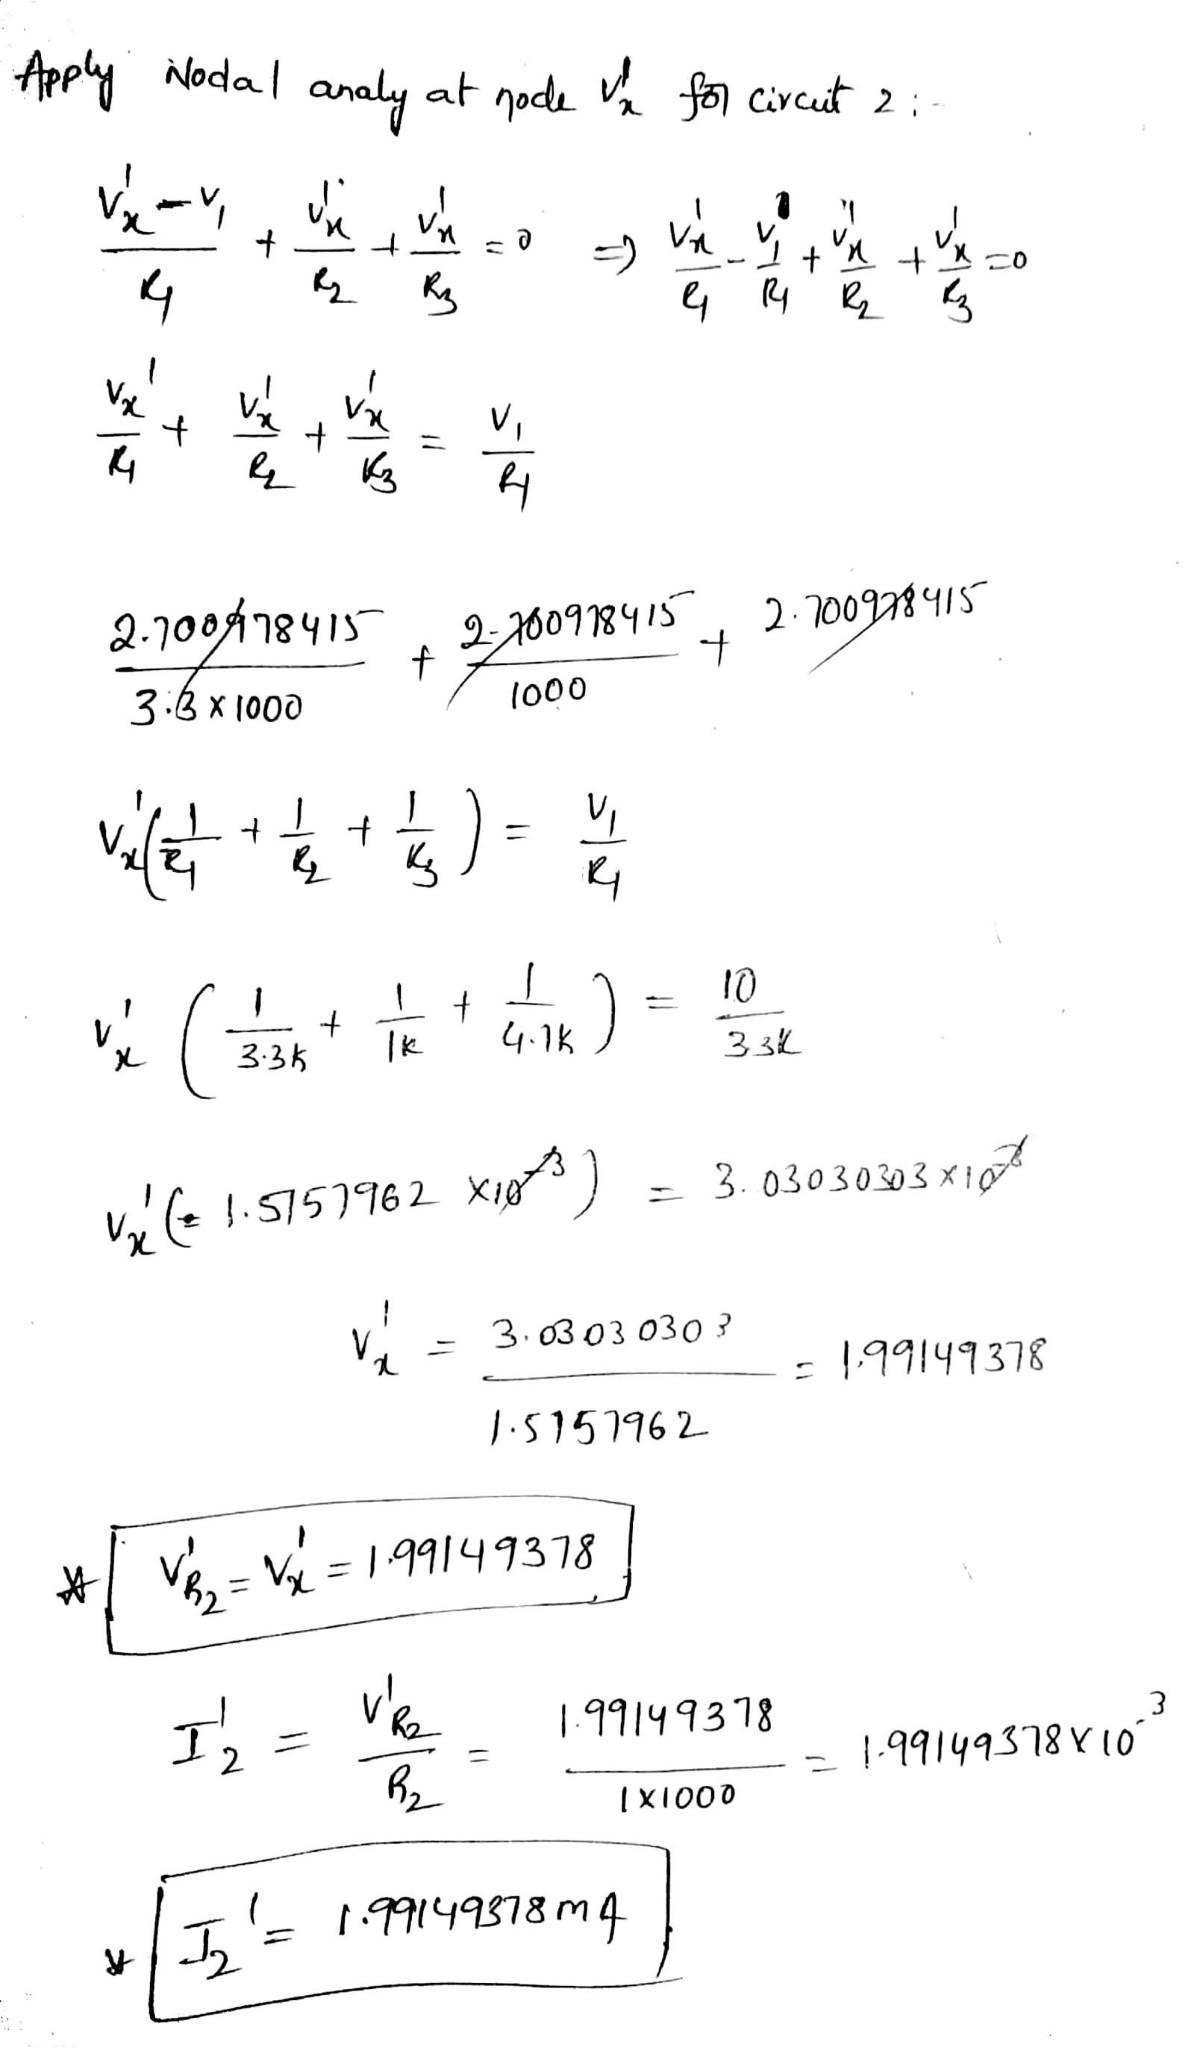 Apply Nodal analy at node Vx' for circuit 2 :-
(Vx' - V1)/R1 + Vx'/R2 + Vx'/R3 = 0 => Vx'/R1 - V1/R1 + Vx'/R2 + Vx'/R3 = 0
Vx'/R1 + Vx'/R2 + Vx'/R3 = V1/R1
2.700978415/3.3 x 1000 + 2.700978415/1000 + 2.700978415
Vx'(1/R1 + 1/R2 + 1/R3) = V1/R1
Vx' (1/3.3K + 1/1K + 1/4.7K) = 10/3.3K
Vx' (1.5757962 x 10^-3) = 3.03030303 x 10^-3
Vx' = 3.03030303/1.5757962 = 1.99149378
* V'R2 = Vx' = 1.99149378
I2' = V'R2/R2 = 1.99149378/1x1000 = 1.99149378 x 10^-3
* I2' = 1.99149378 mA